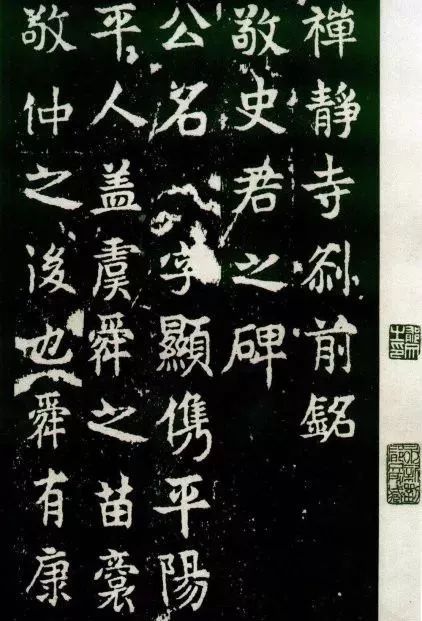 禪靜寺刹前銘
敬史君之碑
公名字顯儁平陽
平人盖虞舜之苗裔
敬仲之後也舜有康